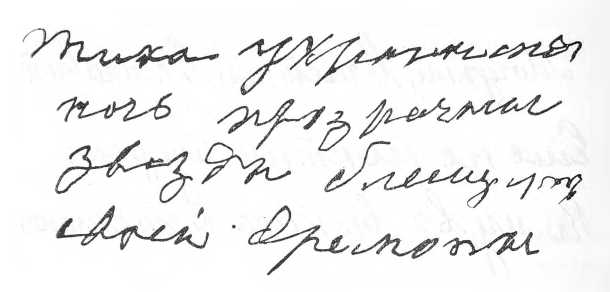 тиха украински
ночь прозрачны
звезды блещут
своей дремоты